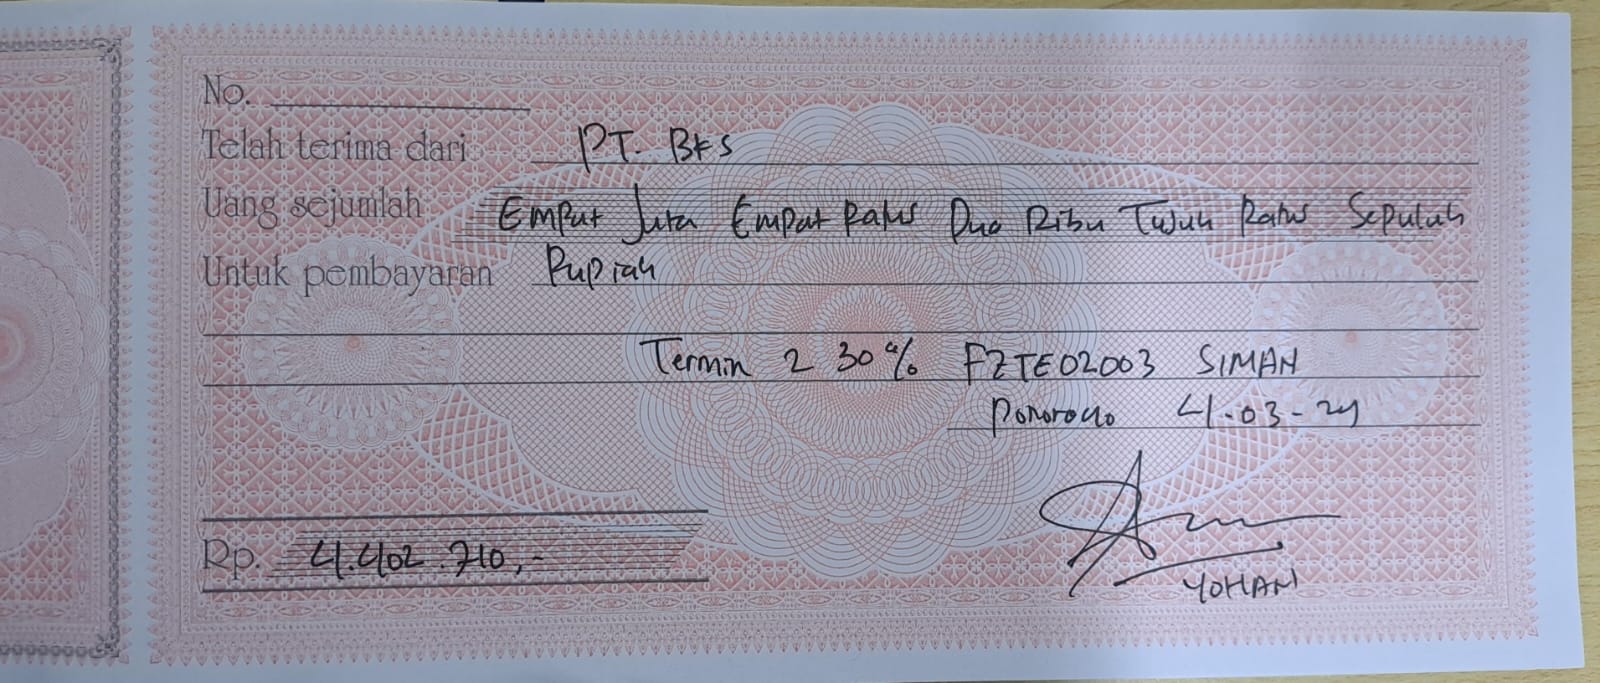 No.
Telah terima dari PT. BKS
Uang sejumlah Empat Juta Empat Ratus Dua Ribu Tujuh Ratus Sepuluh
Untuk pembayaran Rupiah
Termin 2 30% FZTE02003 SIMAN
Ponorogo 4-03-24
Rp. 4.402.710,-
YOHAN